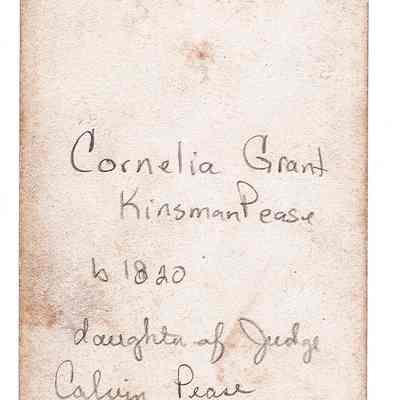 Cornelia Grant
Kinsman Pease
b 1820
daughter of Judge
Calvin Pease